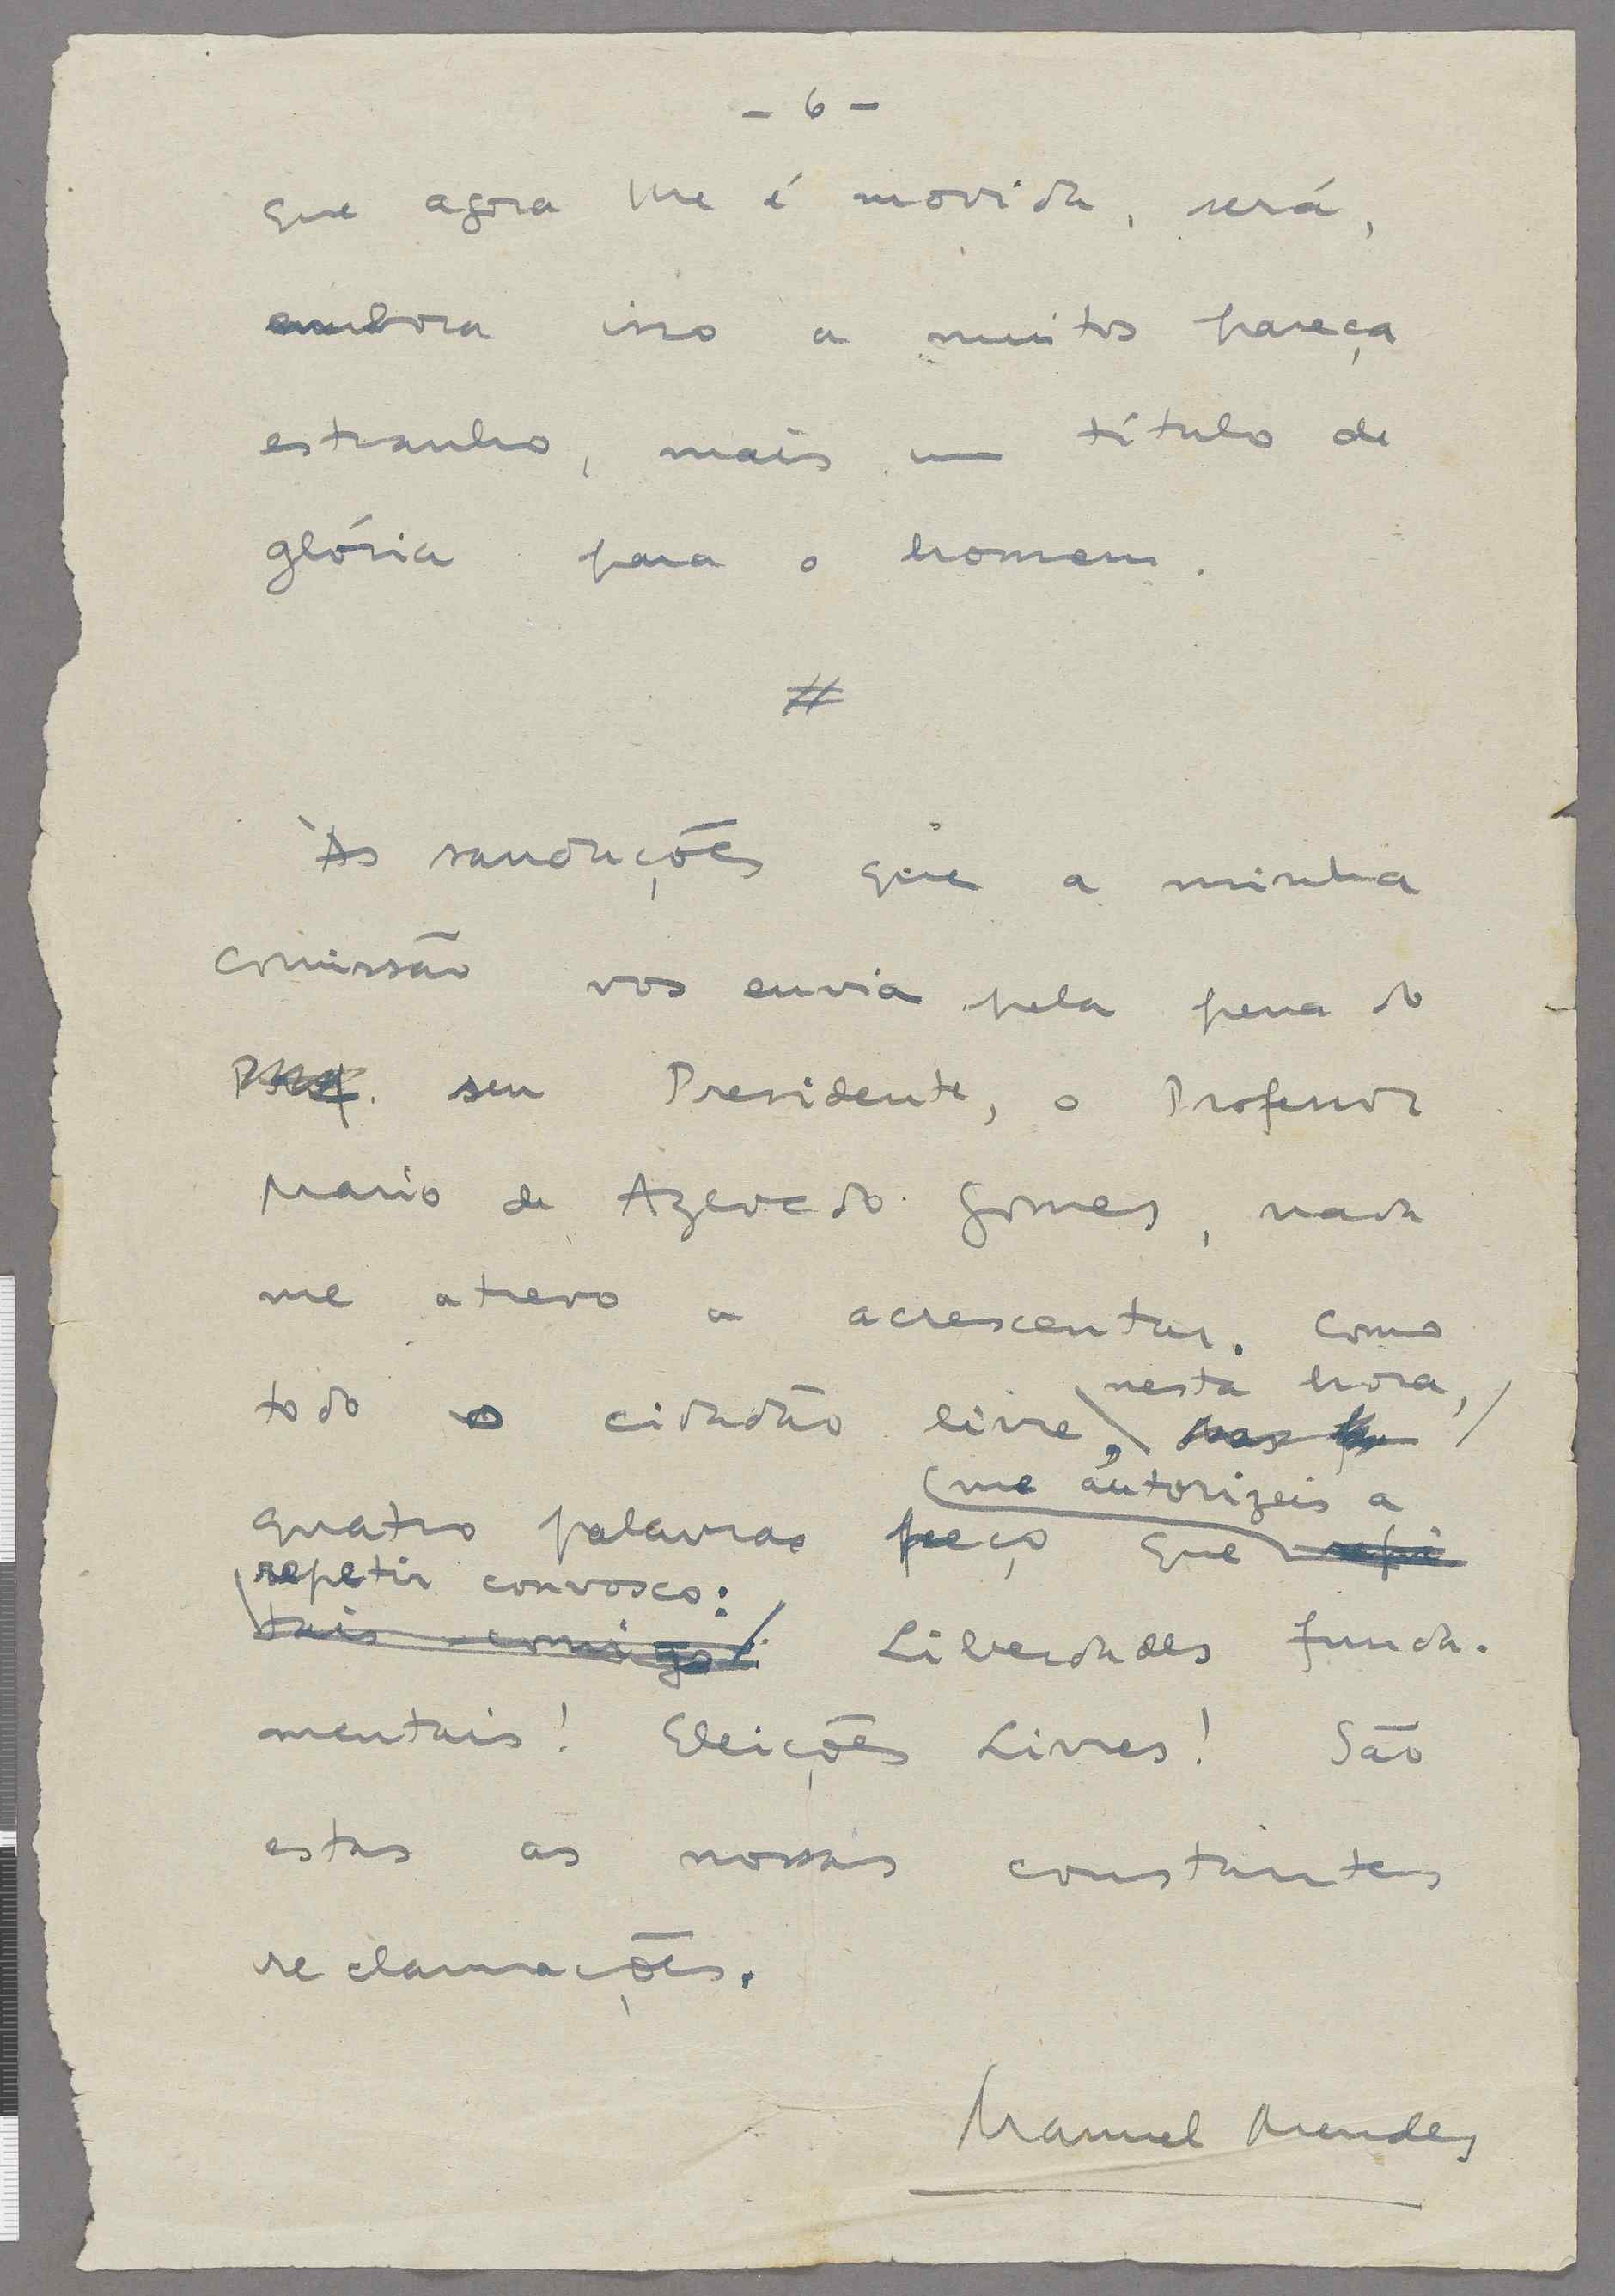 - 6 -
que agora lhe é movida, será,
embora isso a muitos pareça
estranho, mais um título de
glória para o homem.
#
Às saudações que a minha
comissão vos envia pela pena do
Prof. seu Presidente, o Professor
Mario de Azevedo Gomes, nada
me atrevo a acrescentar. Como
nesta hora,
todo o cidadão livre,
me autorizeis a
quatro palavras peço que repi
repetir convosco:
tais comigo:
Liberdades funda-
mentais! Eleições Livres! São
estas as nossas constantes
reclamações.
Manuel Mendes